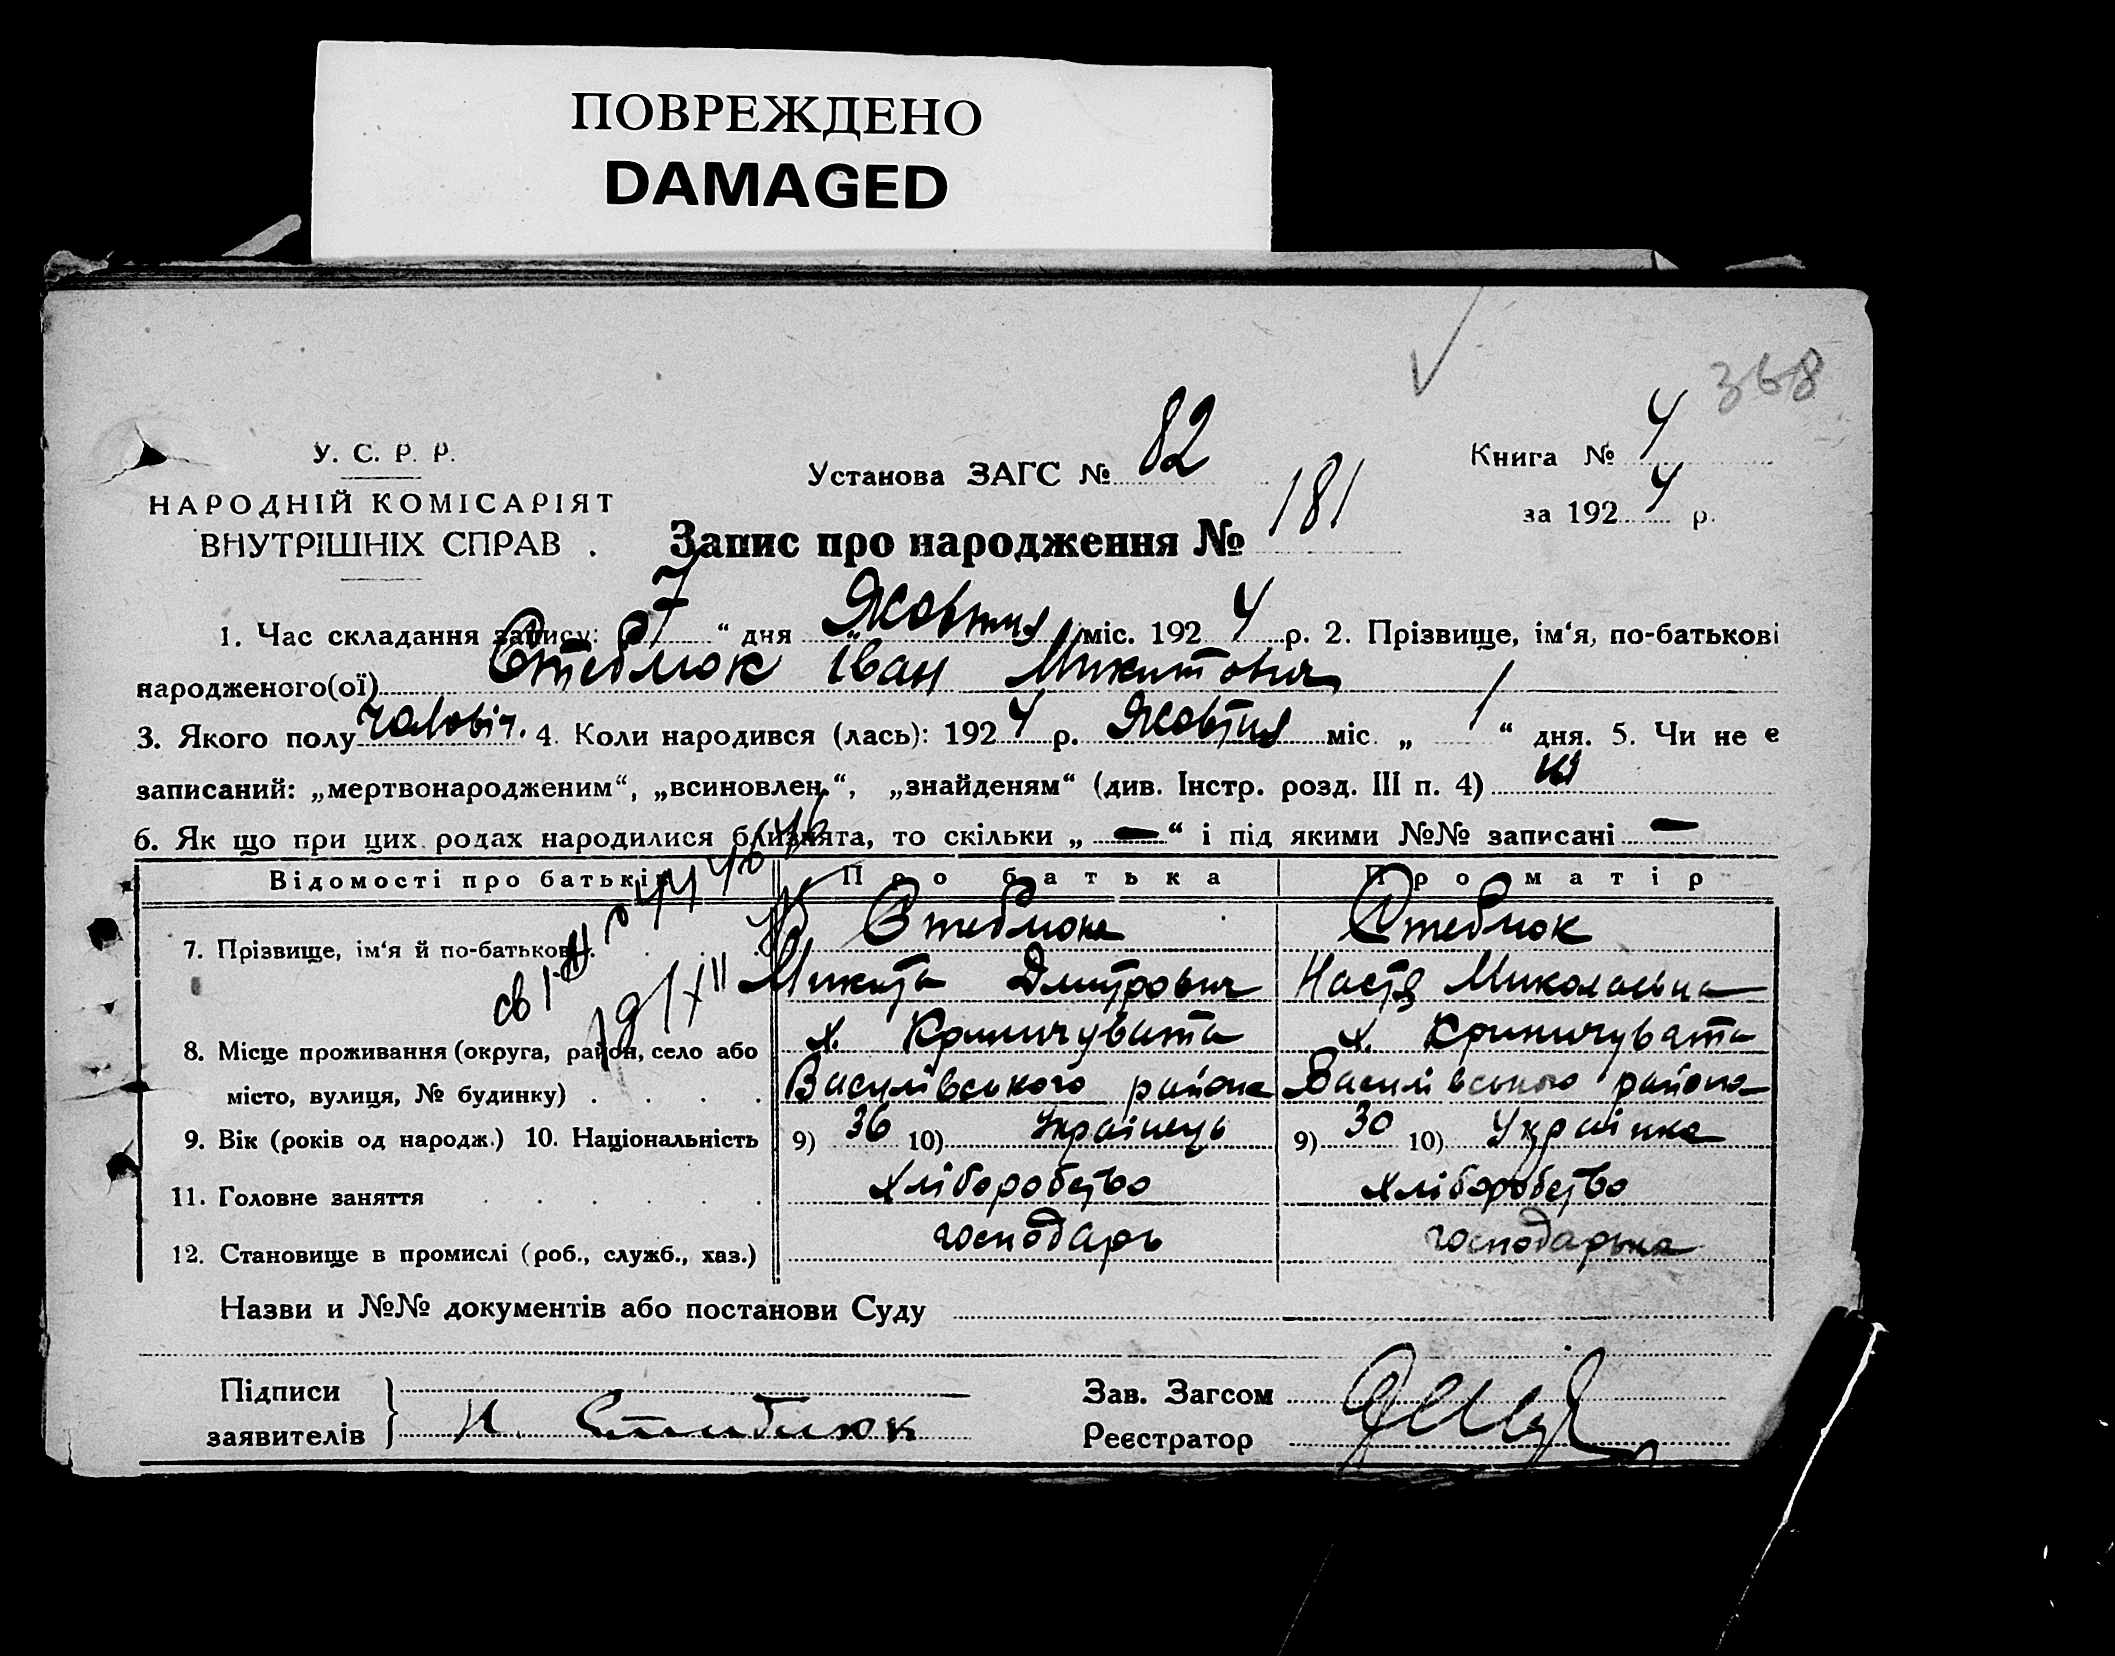 ПОВРЕЖДЕНО
DAMAGED
368
У. С. Р. Р.
НАРОДНІЙ КОМІСАРІЯТ
ВНУТРІШНІХ СПРАВ
Установа ЗАГС № 82
Книга № 4
за 1924 р.
Запис про народження № 181
1. Час складання запису: „ 7 “ дня Жовтня міс. 1924 р. 2. Прізвище, ім‘я, по-батькові
народженого(ої) Стеблюк Іван Микитович
3. Якого полу чаловіч. 4. Коли народився (лась): 1924 р. Жовтня міс. „ 1 “ дня. 5. Чи не є
записаний: „мертвонародженим“, „всиновлен.“, „знайденям“ (див. Інстр. розд. III п. 4) ні
6. Як що при цих родах народилися близнята, то скільки „ — “ і під якими №№ записані —
Відомості про батьків Про батька Про матір
7. Прізвище, ім‘я й по-батькові Стеблюка Стеблюк
Микита Дмитрович Настя Миколаївна
8. Місце проживання (округа, район, село або х. Криничувата х. Криничувата
місто, вулиця, № будинку) Василівського района Василівського района
9. Вік (років од народж.) 10. Національність 9) 36 10) Українець 9) 30 10) Українка
11. Головне заняття хліборобство хліборобство
12. Становище в промислі (роб., служб., хаз.) господарь господарька
Назви и №№ документів або постанови Суду
Підписи
заявителів Н. Стибилюк
Зав. Загсом
Реєстратор